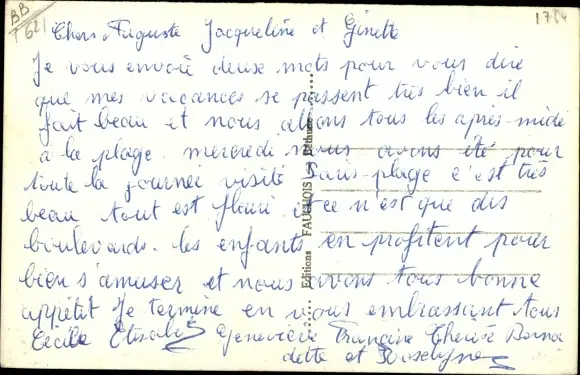 BB
T621
1784
Chers Auguste Jacqueline et Ginette
Je vous envoie deux mots pour vous dire
que mes vacances se passent très bien il
fait beau et nous allons tous les après-midi
à la plage. mercredi nous avons été pour
toute la journée visité Paris-plage c'est très
beau tout est fleuri et ce n'est que des
boulevards. les enfants en profitent pour
bien s'amuser et nous avons tous bonne
appétit Je termine en vous embrassant tous
Cécile Geneviève Francine Thérèse Berna
dette et
Editions FAUCHOIS